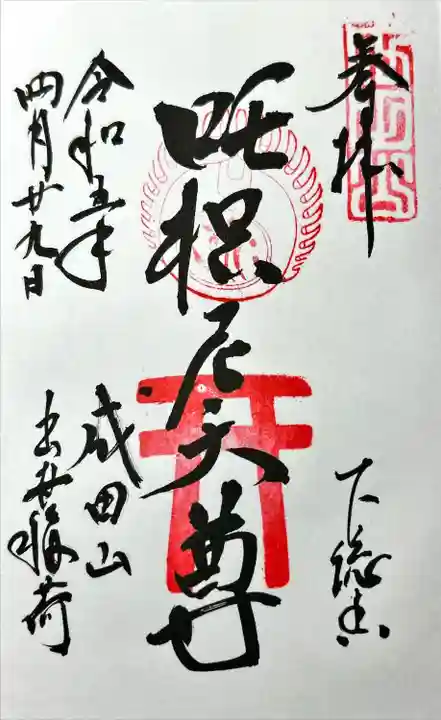 奉拝
下総国
吒枳尼天尊
令和五年
四月廿九日
成田山
出世稲荷